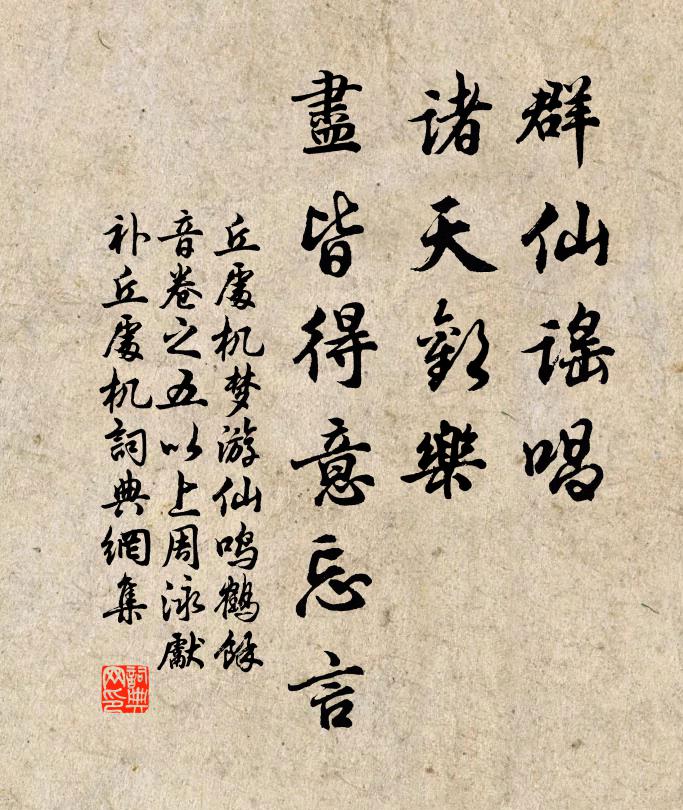 群仙谣唱
诸天歡樂
盡皆得意忘言
丘處机梦游仙鸣鹤餘
音卷之五以上周泳獻
补丘處机詞典網集
詞典网印